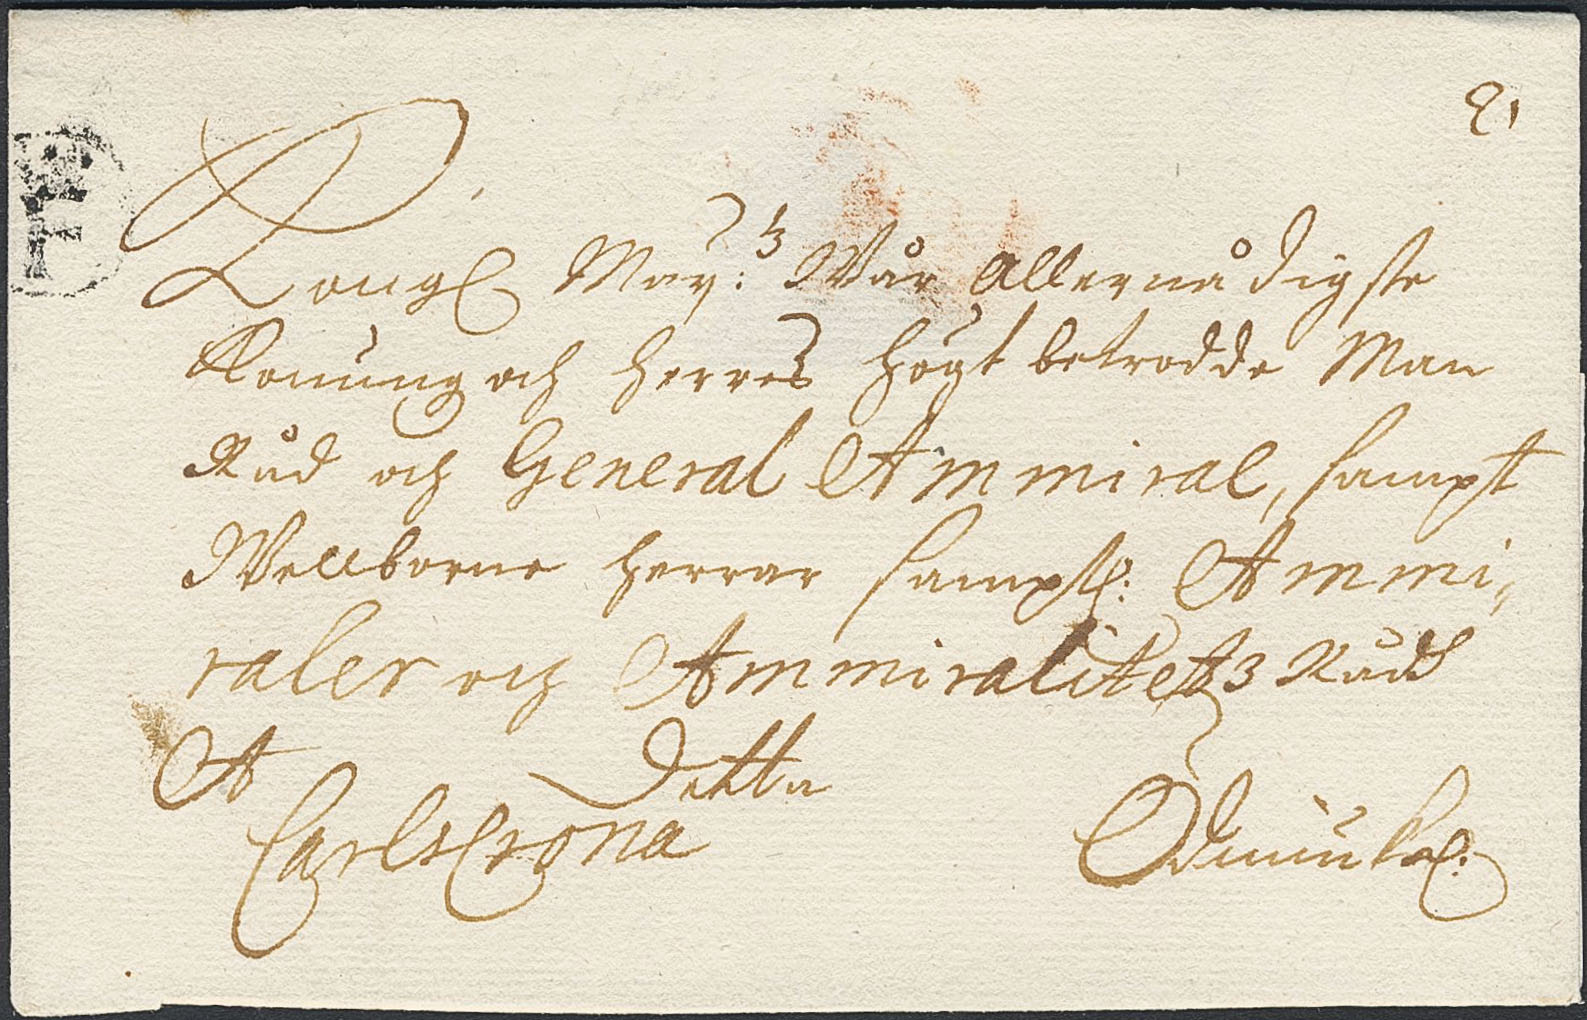 21
Kongl May:tz Wår Allernådigste
Konung och Herres högt betrodde Man
Råd och General Ammiral, sampt
Wellborne Herrar samptl: Ammi,
raler och Ammiralitetz Rådh
A Detta
CarlsCrona Ödmiukel: